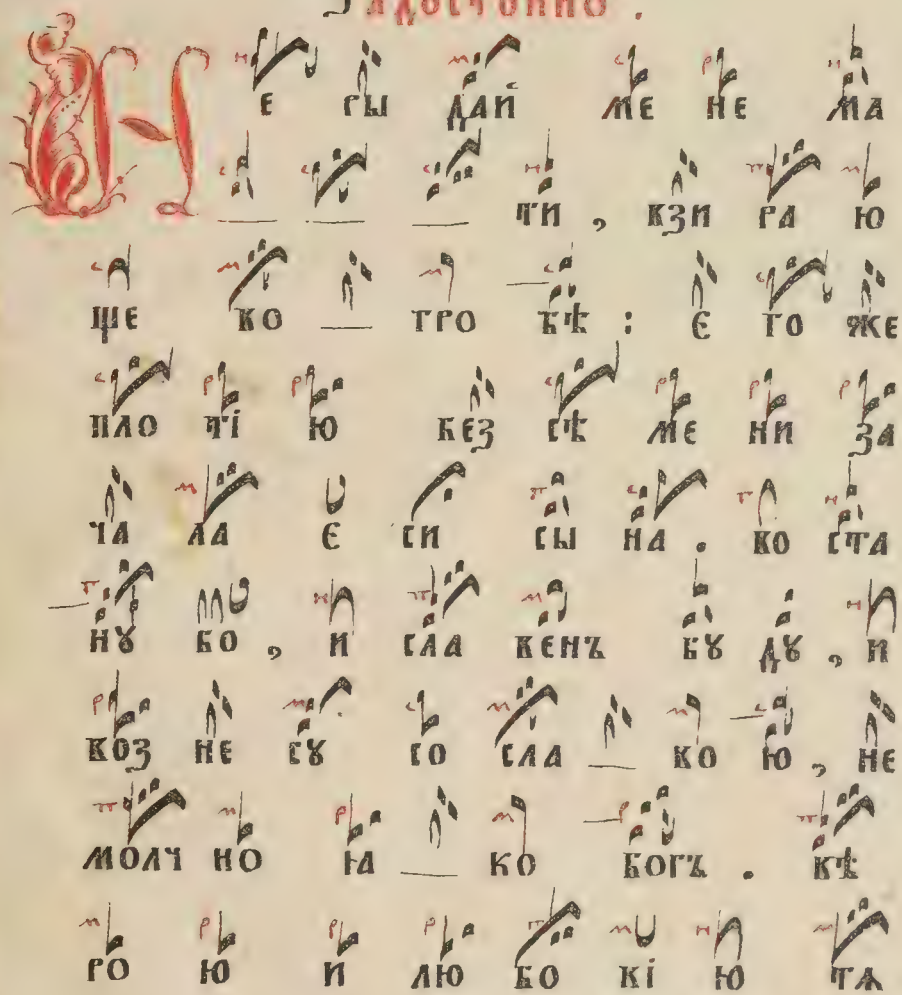 Задостойно.
Не ры дай ме не ма
ти, взи ра ю
ще во гро бѣ : є го же
пло ті ю без сѣ ме ни за
ча ла є си сы на . во ста
нꙋ бо, и сла венъ бꙋ дꙋ, и
воз не сꙋ со сла во ю, не
молч но ꙗ ко богъ . вѣ
ро ю и лю бо вi ю тѧ